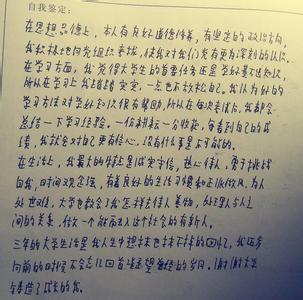 自我鉴定:
在思想品德上,本人有良好道德修养,有坚定的政治方向,
我积极地向党组织靠拢,使我对我们党有更为深刻的认识。
在学习方面,我觉得大学生的首要任务还是学好基本知识,
所以在学习上我踏踏实实,一点也不放松自己。我认为好的
学习方法对学好知识很有帮助,所以在每次考试后,我都会
总结一下学习经验。一份耕耘一分收获,每看到自己的成
绩,我就会对自己更有信心,没有什么事是不可能的。
在生活上,我最大的特点是诚实守信,热心待人,勇于挑战
自我,时间观念强,有着良好的生活习惯和正派作风。与人
处世,大学也教会了我怎样去待人善物,处理人与人之
间的关系,做一个能融入这个社会的有新人。
三年的大学生活是我人生中想抹也抹不掉的回忆,我迈步
向前的时候不会忘记回首凝望曾经的岁月。谢谢大学
生涯造了成长的我。